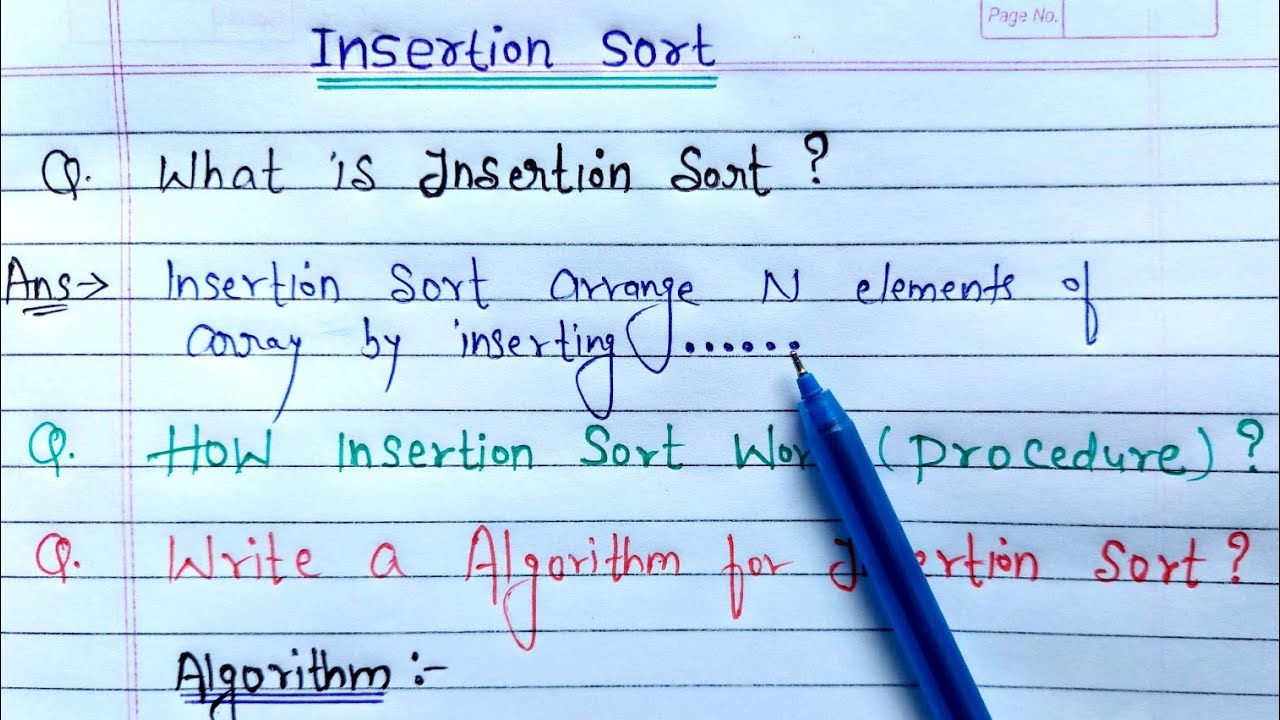 Page No.
Insertion Sort
Q. What is Insertion Sort ?
Ans→ Insertion Sort arrange N elements of
array by inserting ......
Q. How Insertion Sort Wor (procedure) ?
Q. Write a Algorithm for I ertion Sort ?
Algorithm :-